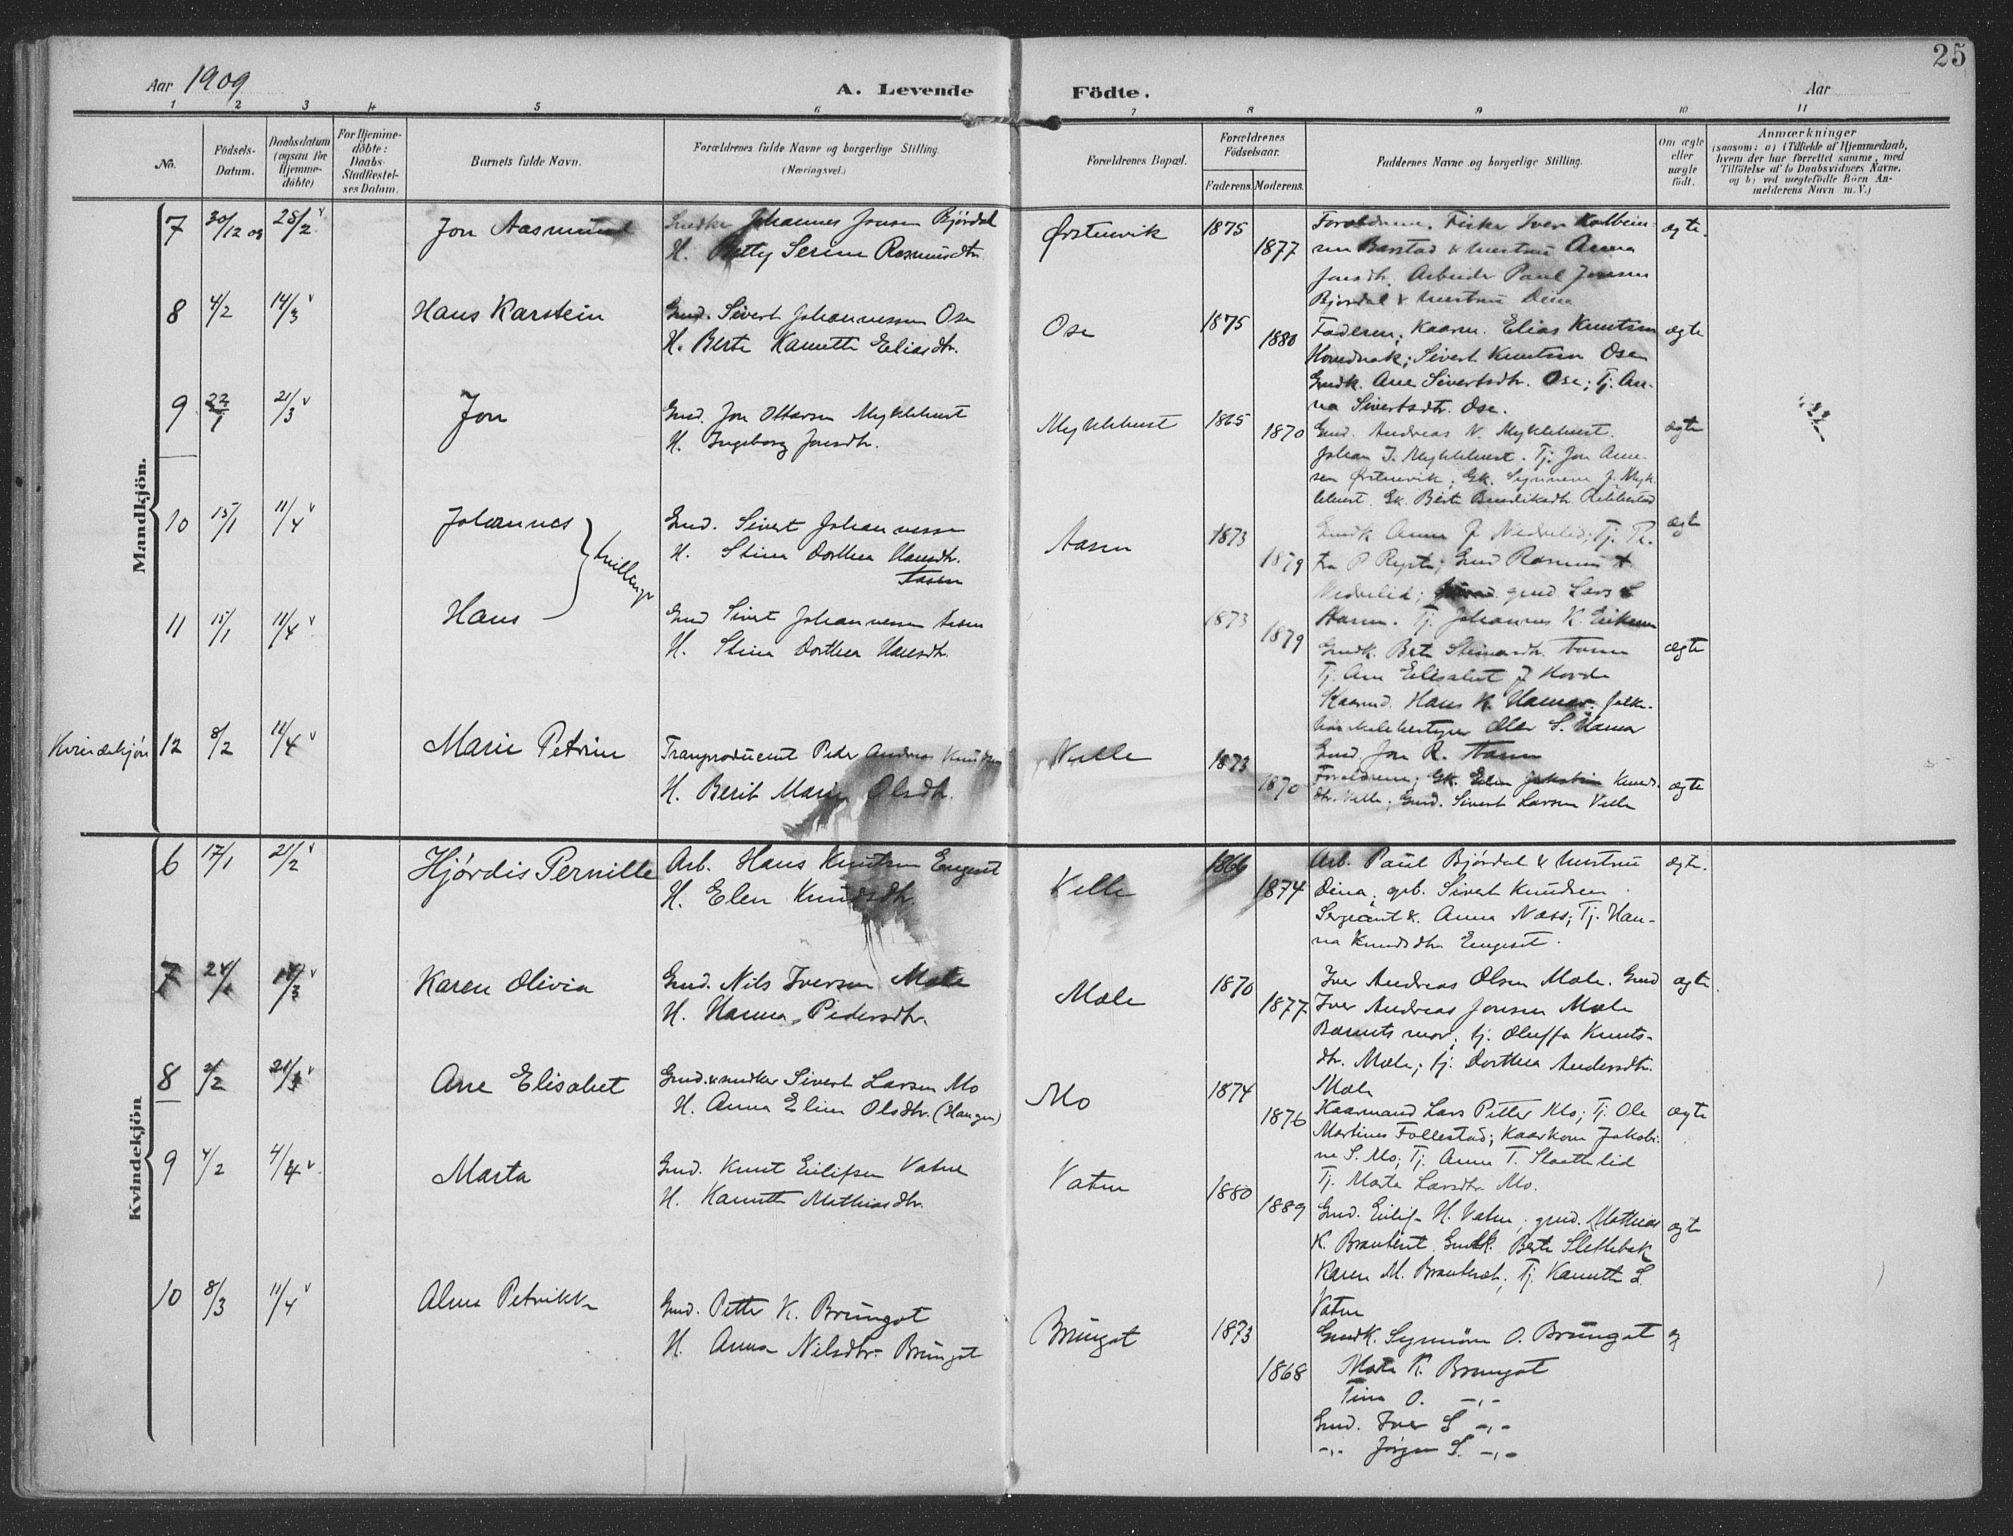 25
Aar 1909
A. Levende
Födte.
Aar
1 2 3 4 5 6 7 8 9 10 11
No.
Födsels-
Datum.
Daabsdatum
(ogsaa for
Hjemme-
döbte)
For Hjemme-
döbte:
Daabs-
Stadfæstel-
ses Datum.
Barnets fulde Navn.
Forældrenes fulde Navne og borgerlige Stilling
(Næringsvei.)
Forældrenes Bopæl.
Forældrenes
Födselsaar.
Faderens. Moderens.
Faddernes Navne og borgerlige Stilling.
Om ægte
eller
uægte
födt.
Anmærkninger
(saasom: a) i Tilfælde af Hjemmedaab,
hvem der har forrettet samme, med
Tilföielse af to Daabsvidners Navne.
og b) ved uægtefödte Börn An-
melderens Navn m. V.)
Mandkjön.
7 30/12 08 28/2 Jon Aasmund
Johannes Jonsen Bjørdal
H. Betty Serine Rasmusdtr.
Ørstenvik 1875 1877
Forældrene. Fisker Iver Kolbein-
sen Barstad & hustru Anna
Jonsdtr. Arbeider Paul Jonsen
Bjørdal & hustru Dina
ægte
8 4/2 14/3 Hans Karstein
Gmd. Sivert Johannessen Ose
H. Berte Kanutte Eliasdtr.
Ose 1875 1880
Faderen; Kaarm. Elias Knutsen
Hovednak; Sivert Knutsen Ose
Gmdk. Ane Sivertsdtr. Ose; Tj. An-
na Sivertsdtr. Ose.
ægte
9 22/1 21/3 Jon
Gmd. Jon Ottarsen Myklebust
H. Ingeborg Jonsdtr.
Myklebust 1865 1870
Gmd. Andreas N. Myklebust.
Johan J. Myklebust. Tj. Jon Arne-
sen Ørstenvik; Gk. Synneve J. Myk-
lebust. Gk. Berte Bendiksdtr. Rebbestad
ægte
10 15/1 11/4 Johannes
Tvillinger
Gmd. Sivert Johannessen
H. Stina Dorthea Hansdtr.
Aasen
Aasen 1873 1879
Gmdk Anna J Nedrelid; Tj.
P Rypt; Gmd Rasmus A
Nedrelid; gmd. Lars L
ægte
11 15/1 11/4 Hans
Gmd Sivert Johannessen Aasen
H. Stina Dorthea Hansdtr.
1873 1879
Aasen. Tj. Johannes K. Eriksen
Gmdk. Berte Steinarsdtr. Aasen
Tj. Ane Elisabet J Hovde
Kaarmd. Hans K. Hamar; folke-
høiskolebestyrer Olav S. Hamar
Gmd Jon R. Aasen
ægte
Kvindekjön 12 8/2 12/4 Marie Petrine
Tranproducent Peder Andreas Knudsen
H. Berit Marie Olsdtr.
Velle 1873 1870
Forældrene; Gk. Elen Jakobine Knuds-
dtr. Velle; Gmd. Sivert Larsen Velle
ægte
Kvindekjön
6 17/1 21/2 Hjørdis Pernille
Arb. Hans Knutsen Engeset
H. Elen Knudsdtr.
Velle 1866 1874
Arb. Paul Bjørdal & hustru
Dina; grb. Sivert Knudsen
Sergeant & Anna Næss; Tj. Han-
na Knudsdtr Engeset.
ægte.
7 24/1 14/3 Karen Olivia
Gmd. Nils Iversen Mæle
H. Hanna Pedersdtr.
Mæle 1870 1877
Iver Andreas Olsen Mæle. Gmd
Iver Andreas Jonsen Mæle
Barnets mor; tj. Oluffa Knuts-
dtr. Mæle; tj. Dorthea Andersdtr.
Mæle
ægte
8 2/2 21/3 Ane Elisabet
Gmd. & smeder Sivert Larsen Mo
H. Anna Eline Olsdtr. (Haugen)
Mo 1874 1876
Kaarmand Lars Petter Mo; Tj. Ole
Martinus Follestad; Kaarkone Jakobi-
ne S. Mo; Tj. Anna T. Slaattelid
Tj. Marta Larsdtr Mo.
ægte
9 4/2 4/4 Marta
Gmd. Knut Eilifsen Vatne
H. Kanutte Mathiasdtr.
Vatne 1880 1889
Gmd. Eilif H. Vatne; gmd. Mathias
K. Brauteset, Gmdk. Berte Slettebak
Karen M. Brauteset; Tj. Kanutte L.
Vatne
ægte
10 8/3 11/4 Alma Petrikke
Gmd. Petter K. Brungot
H. Anna Nilsdtr. Brungot
Brungot 1873 1868
Gmdk. Synnøve O. Brungot
Marte K. Brungot
Tina O. -„-
Gmd. Iver S -„-
-„- Jørgen S. -„-